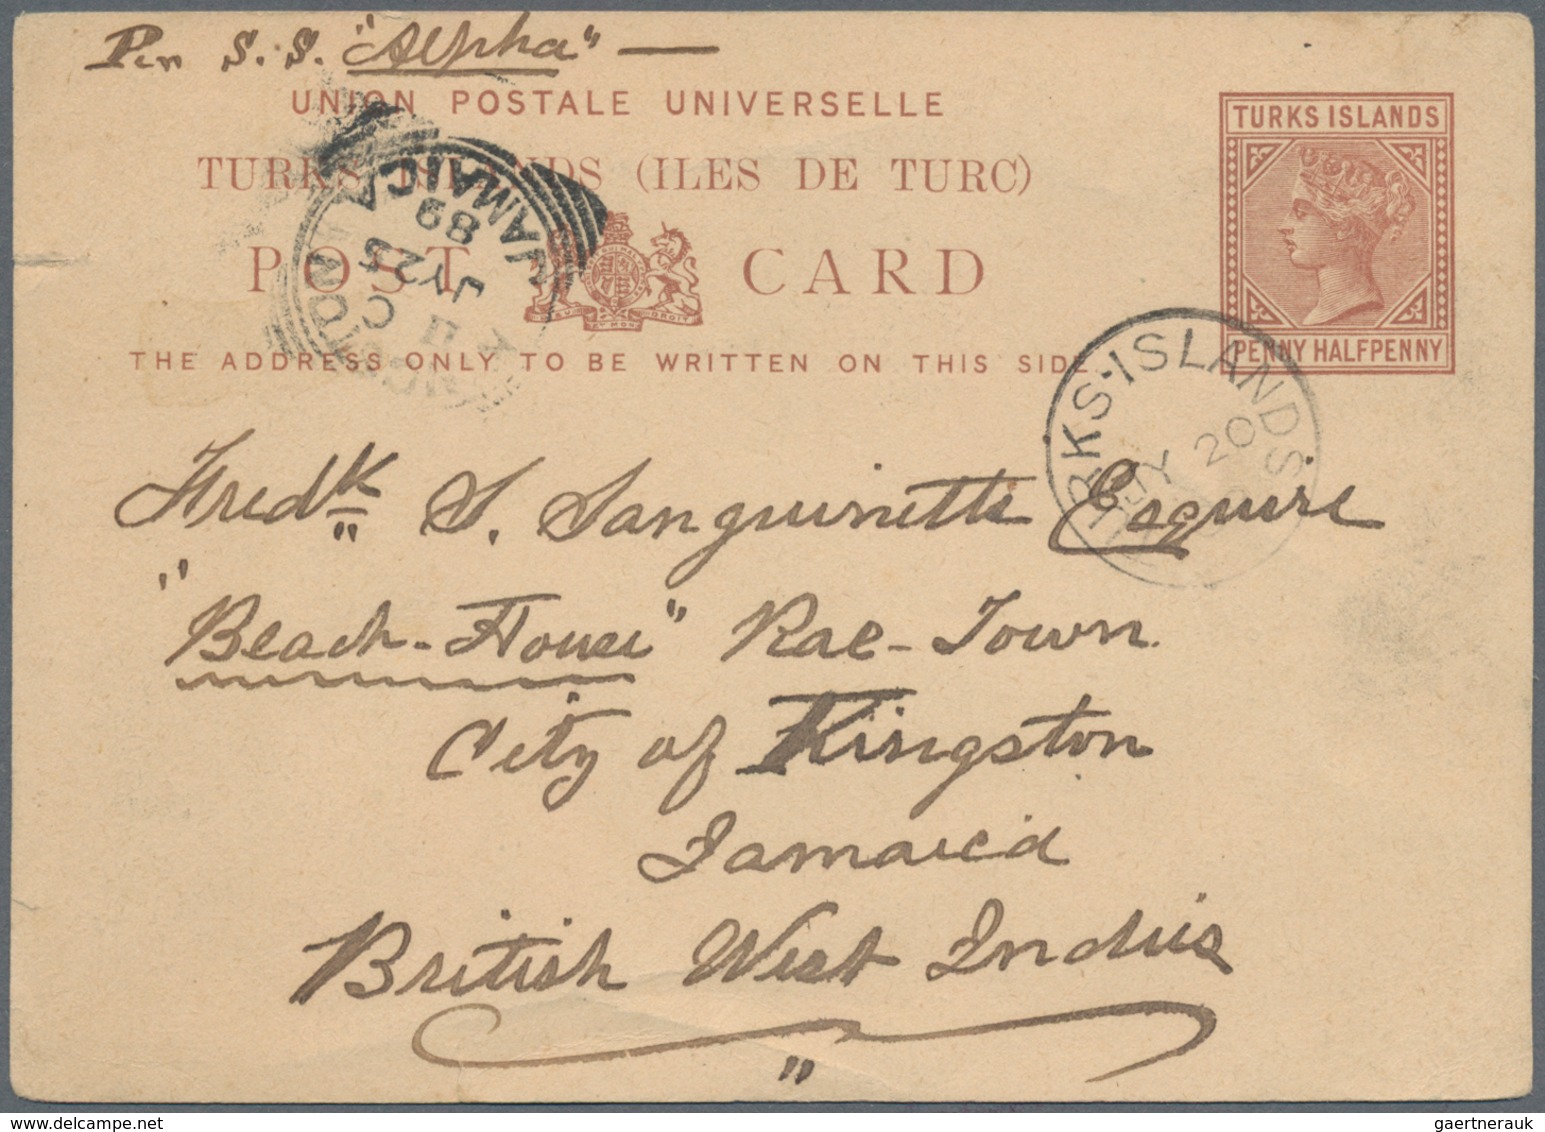 Per S. S. "Alpha" —
UNION POSTALE UNIVERSELLE
TURKS ISLANDS
TURKS ISLANDS (ILES DE TURC)
POST CARD
PENNY HALFPENNY
THE ADDRESS ONLY TO BE WRITTEN ON THIS SIDE.
KINGSTON JAMAICA
C
JY 25
89
RKS-ISLANDS
JY 20
Fredk S. Sanguinetti Esquire
"Beach-House" Rae-Town
City of Kingston
Jamaica
British West Indies
gaertnerauk